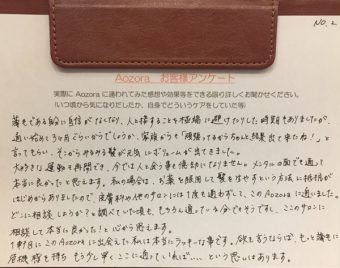 NO.2
Aozora お客様アンケート
実際に Aozora に通われてみた感想や効果等をできる限り詳しくお聞かせください。
(いつ頃から気になりだしたか、自身でどういうケアをしていた等)
薄毛である自分に自信がなくなり、人と接することを極端に避けたりした時期もありましたが、
通い始めて3ヶ月ぐらいからでしょうか、家族からも「頑張ってるからちゃんと結果出て来たね!」と
言ってもらい、そこからみるみる髪が元気にボリュームが出てきました。
大好きな運動も再開でき、今では人と会う事も億劫になりません。メンタルの面でも通って
本当に良かったと思えます。私の場合は、お薬を服用して髪を増やすという方法に抵抗が
はじめからありましたので、皮膚科や他のサロンには1度も通わずして、このAozoraに通いました。
どこに相談しようか?と調べていた頃も、もちろん通っている今でもそうですし、ここのサロンに
相談して本当に良かった!と心から思えます。
1軒目にこのAozoraに出会えた私は本当にラッキーな事です。欲を言うならば、もっと薄毛に
危機感を持ち もう少し早くここに通っていれば……という思いはあります。